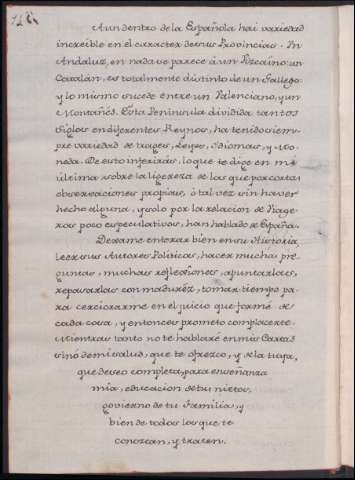 Aun dentro de la Española hai variedad
increible en el caracter de sus Provincias. Un
Andaluz, en nada se parece á un Vizcaino: un
Catalán, es totalmente distinto de un Gallego:
y lo mismo sucede entre un Valenciano, y un
Montañés. Esta Peninsula dividida tantos
Siglos en diferentes Reynos, ha tenido siem-
pre variedad de trages, Leyes, Idiomas, y Mo-
neda. De esto inferirás, lo que te dige en mi
última sobre la ligereza de los que por cortas
observaciones propias, ó tal vez sin haver
hecho alguna, y solo por la relacion de Viage-
ros poco especulativos, han hablado de España.
Dexame enterar bien en su Historia,
leer sus Autores Politicos, hacer muchas pre-
guntas, muchas reflexiones, apuntarlas,
repasarlas con madurez, tomar tiempo pa-
ra cerciorarme en el juicio que formé de
cada cosa, y entonces prometo complacerte.
Mientras tanto no te hablaré en mis Cartas
sino de mi salud, que te ofrezco, y de la tuya,
que deseo completa, para enseñanza
mia, educacion de tus nietos,
govierno de tu Familia, y
bien de todos los que te
conozcan, y traten.